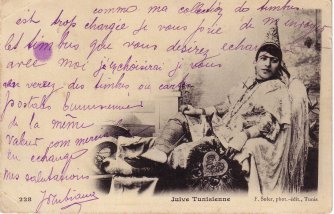 comme ma collection de timbres
est trop chargée je vous prie de m'envoyer
les timbres que vous désirez échanger
avec moi j'y choisirai je vous
en verrez des timbres ou cartes
postales
de la même
Valeur
en échange
mes salutations
228
Juive Tunisienne
F. Soler, phot.-édit., Tunis